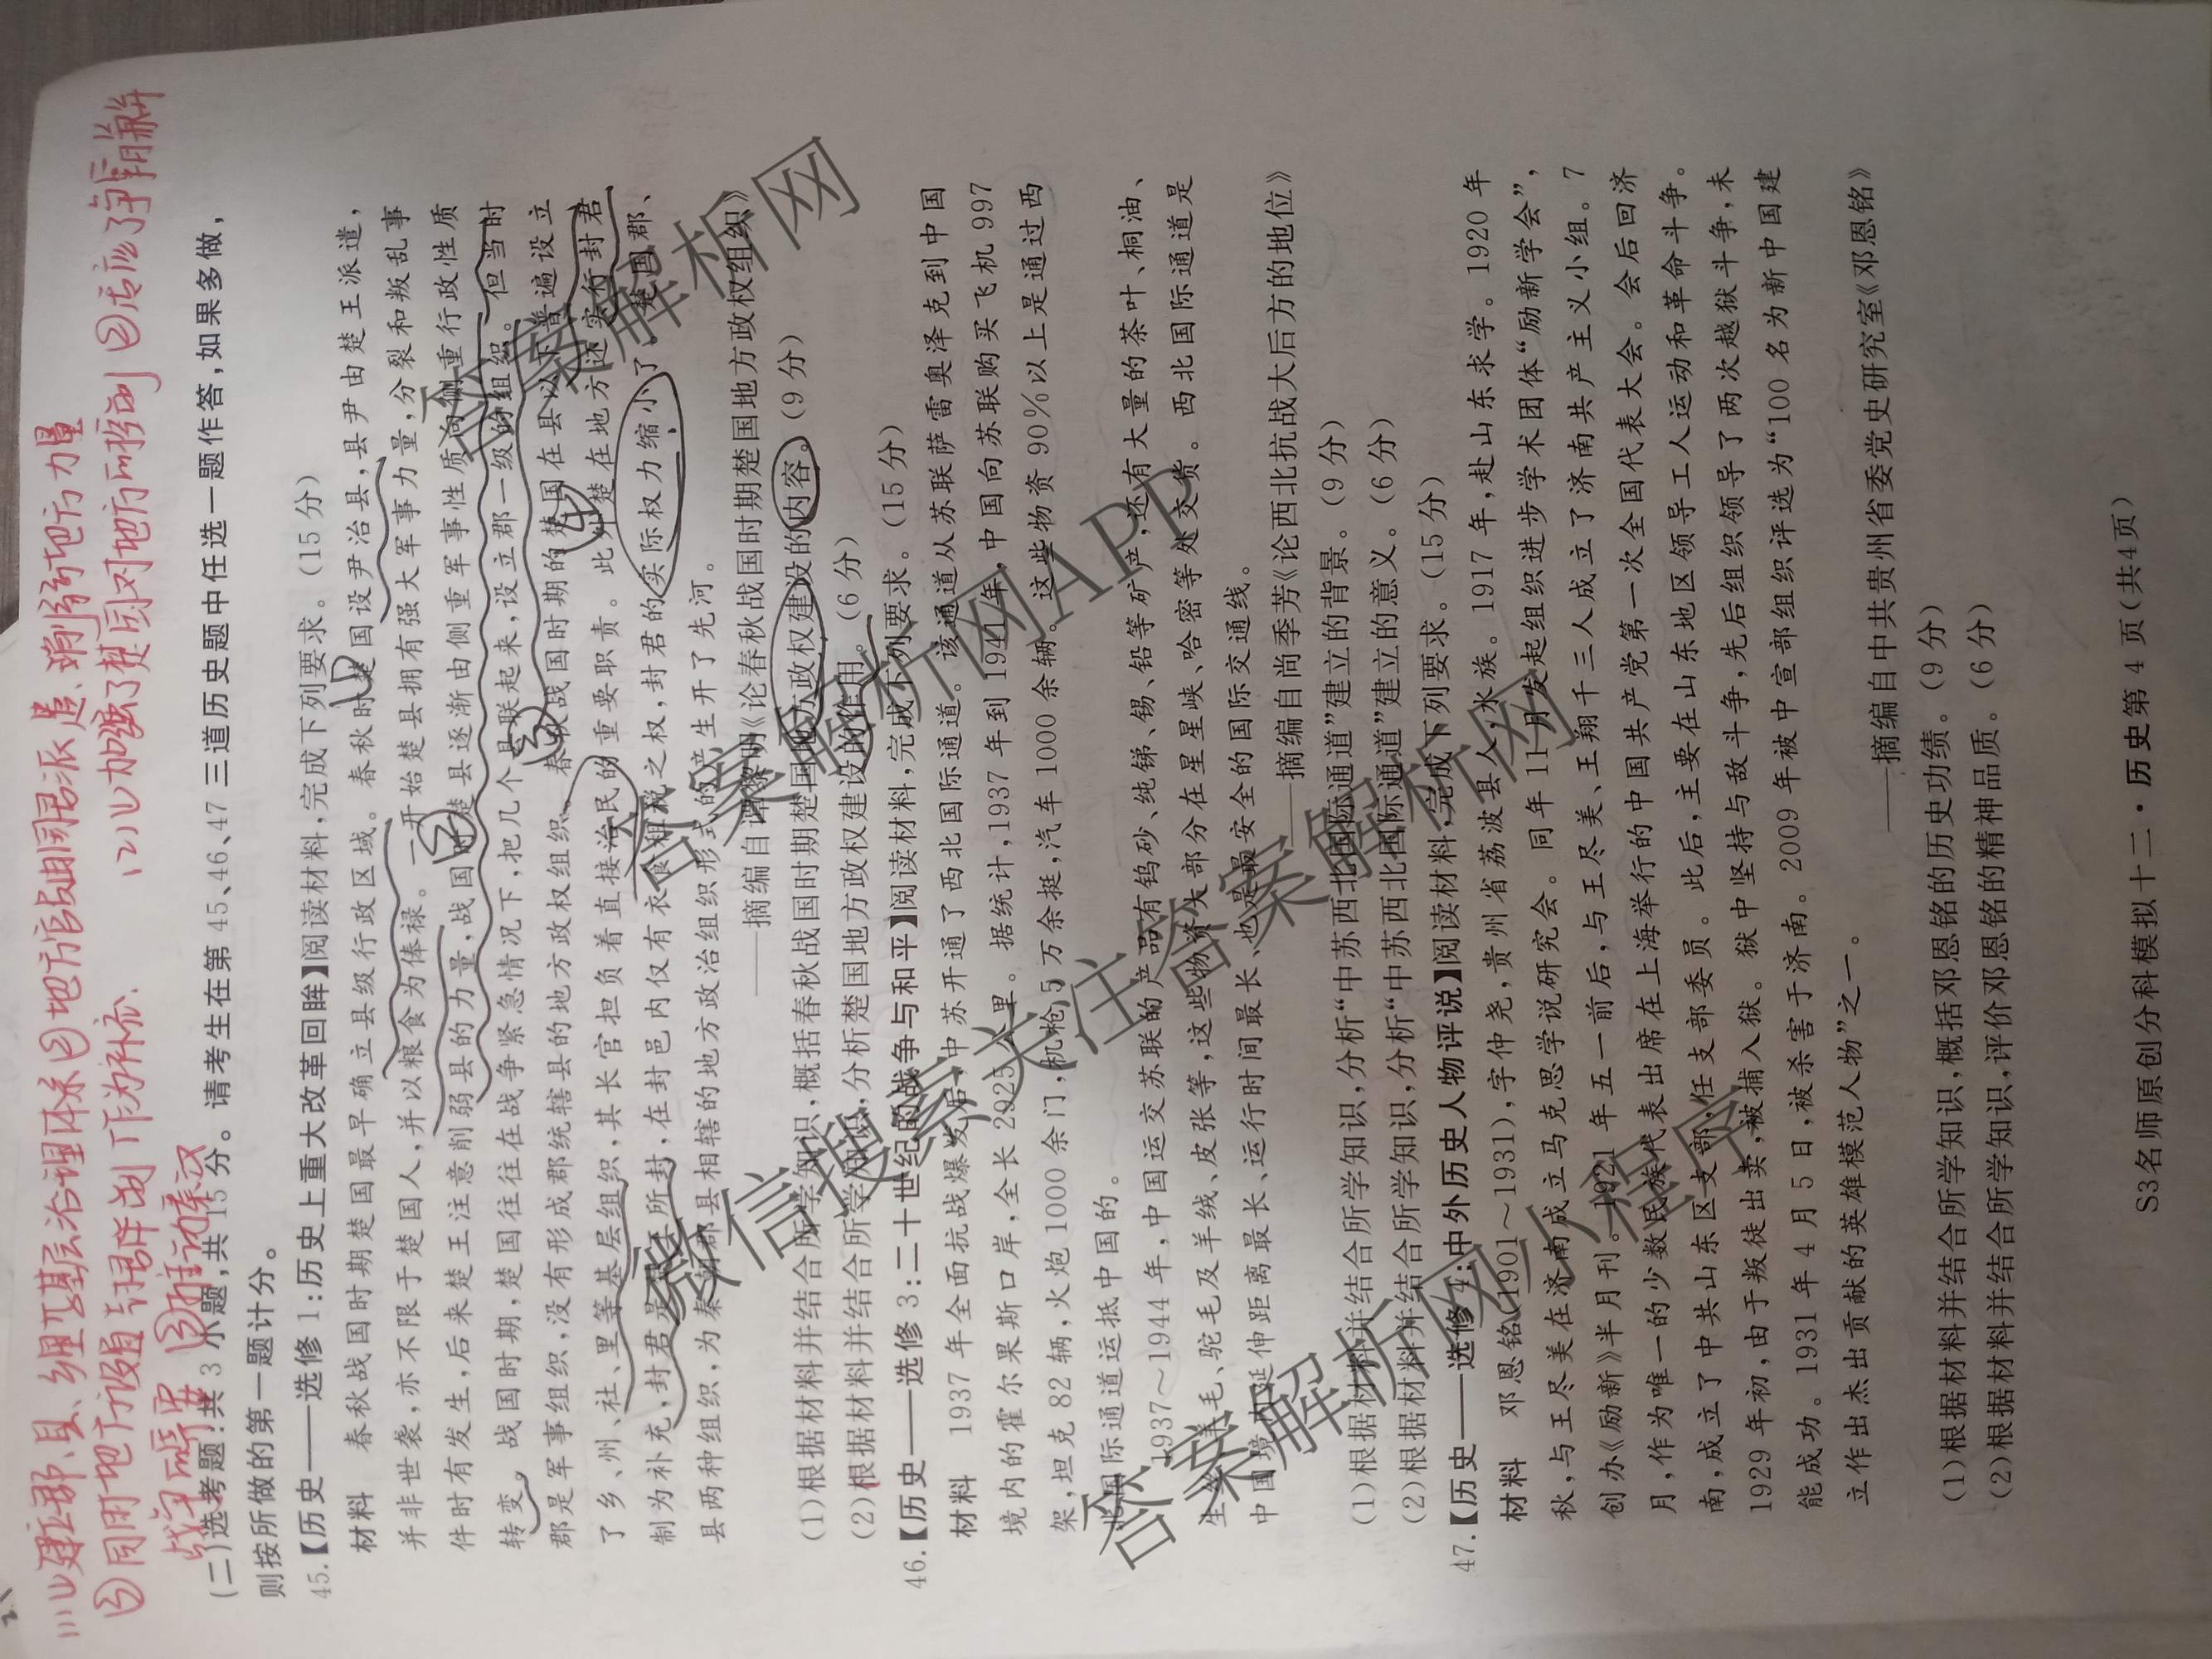 (1)①建立郡、县、乡里基层治理体系②地方官员由国君派遣、削弱地方力量
③同时地方设置封君制作为补充.  (2)①加强了楚国对地方的控制②适应了争霸兼并
战争的需要③推动秦汉
(二)选考题:共3小题,共15分。请考生在第45、46、47三道历史题中任选一题作答,如果多做,
则按所做的第一题计分。
45.【历史——选修1:历史上重大改革回眸】阅读材料,完成下列要求。(15分)
材料 春秋战国时期楚国最早确立县级行政区域。春秋时楚国设尹治县,县尹由楚王派遣,
并非世袭,亦不限于楚国人,并以粮食为俸禄。一开始楚县拥有强大军事力量,分裂和叛乱事
件时有发生,后来楚王注意削弱县的力量,战国时楚县逐渐由侧重军事性质向侧重行政性质
转变。战国时期,楚国往往在战争紧急情况下,把几个县联起来,设立郡一级的组织。但当时
郡是军事组织,没有形成郡统辖县的地方政权组织。春秋战国时期的楚国在县以下普遍设立
了乡、州、社、里等基层组织,其长官担负着直接治民的重要职责。此外楚在地方还实行封君
制为补充,封君是王所封,在封邑内仅有衣食租税之权,封君的实际权力缩小了,楚国郡、
县两种组织,为秦朝郡县相辖的地方政治组织形式的产生开了先河。
——摘编自谭黎明《论春秋战国时期楚国地方政权组织》
(1)根据材料并结合所学知识,概括春秋战国时期楚国地方政权建设的内容。(9分)
(2)根据材料并结合所学知识,分析楚国地方政权建设的作用。(6分)
46.【历史——选修3:二十世纪的战争与和平】阅读材料,完成下列要求。(15分)
材料 1937年全面抗战爆发后,中苏开通了西北国际通道。该通道从苏联萨雷奥泽克到中国
境内的霍尔果斯口岸,全长2925公里。据统计,1937年到1941年,中国向苏联购买飞机997
架,坦克82辆,火炮1000余门,机枪5万余挺,汽车1000余辆。这些物资90%以上是通过西
北国际通道运抵中国的。
1937~1944年,中国运交苏联的产品有钨砂、纯锑、锡、铅等矿产,还有大量的茶叶、桐油、
生丝、羊毛、驼毛及羊绒、皮张等,这些物资大部分在星星峡、哈密等处交货。西北国际通道是
中国境内延伸距离最长、运行时间最长、也是最安全的国际交通线。
——摘编自尚季芳《论西北抗战大后方的地位》
(1)根据材料并结合所学知识,分析“中苏西北国际通道”建立的背景。(9分)
(2)根据材料并结合所学知识,分析“中苏西北国际通道”建立的意义。(6分)
47.【历史——选修4:中外历史人物评说】阅读材料,完成下列要求。(15分)
材料 邓恩铭(1901~1931),字仲尧,贵州省荔波县人,水族。1917年,赴山东求学。1920年
秋,与王尽美在济南成立马克思学说研究会。同年11月发起组织进步学术团体“励新学会”,
创办《励新》半月刊。1921年五一前后,与王尽美、王翔千三人成立了济南共产主义小组。7
月,作为唯一的少数民族代表出席在上海举行的中国共产党第一次全国代表大会。会后回济
南,成立了中共山东区支部,任支部委员。此后,主要在山东地区领导工人运动和革命斗争。
1929年初,由于叛徒出卖,被捕入狱。狱中坚持与敌斗争,先后组织领导了两次越狱斗争,未
能成功。1931年4月5日,被杀害于济南。2009年被中宣部组织评选为“100名为新中国建
立作出杰出贡献的英雄模范人物”之一。
——摘编自中共贵州省委党史研究室《邓恩铭》
(1)根据材料并结合所学知识,概括邓恩铭的历史功绩。(9分)
(2)根据材料并结合所学知识,评价邓恩铭的精神品质。(6分)
S3名师原创分科模拟十二·历史第4页(共4页)
微信搜索关注答案解析网
答案解析网APP
答案解析网小程序
答案解析网